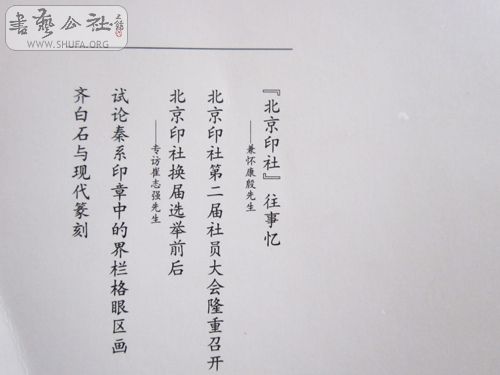 書藝公社
WWW.SHUFA.ORG
『北京印社』往事忆
——兼怀康殷先生
北京印社第二届社员大会隆重召开
北京印社换届选举前后
——专访崔志强先生
试论秦系印章中的界栏格眼区画
齐白石与现代篆刻